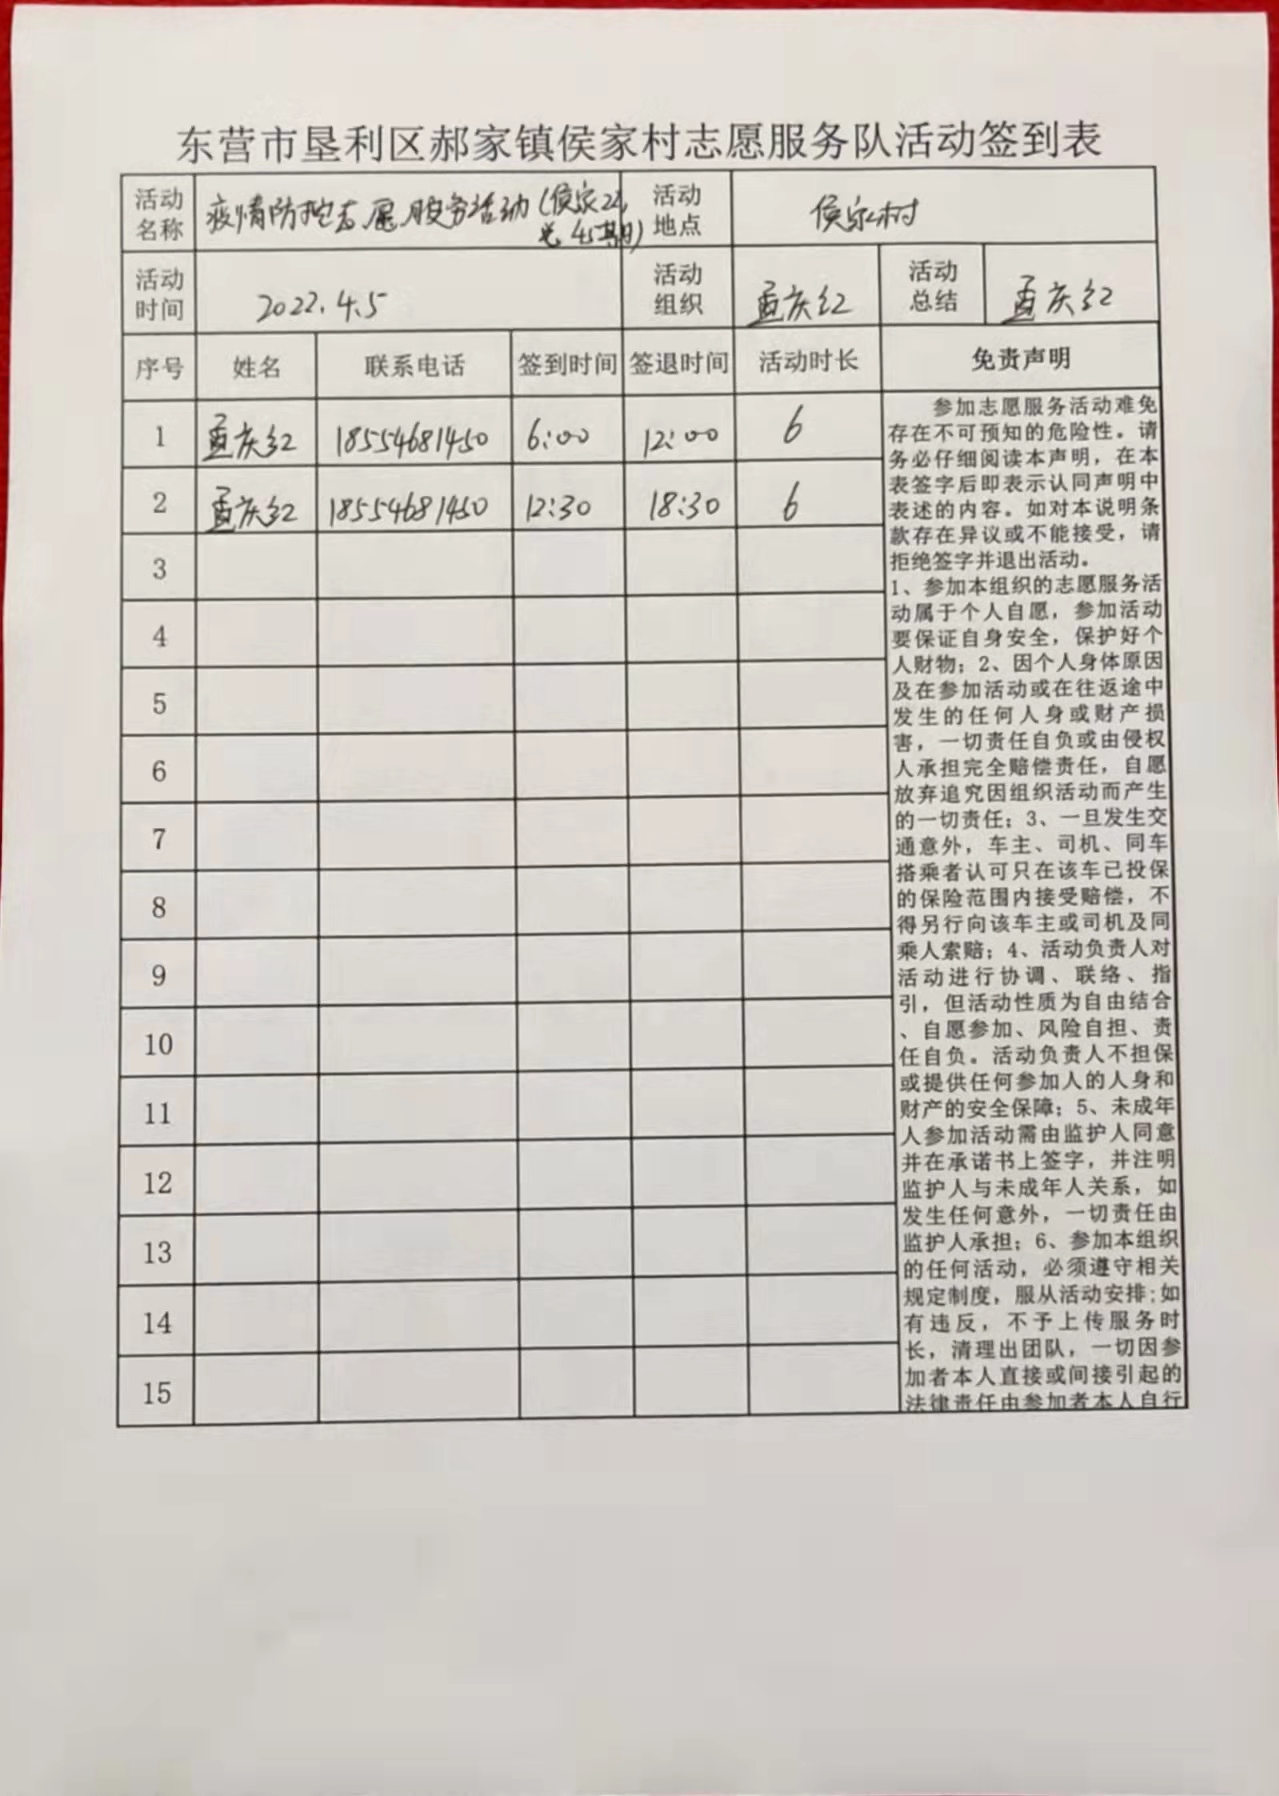 东营市垦利区郝家镇侯家村志愿服务队活动签到表
活动名称 疫情防控志愿服务活动(侯家22, 总45期) 活动地点 侯家村
活动时间 2022.4.5 活动组织 孟庆红 活动总结 孟庆红
序号 姓名 联系电话 签到时间 签退时间 活动时长 免责声明
1 孟庆红 18554681450 6:00 12:00 6
2 孟庆红 18554681450 12:30 18:30 6
3
4
5
6
7
8
9
10
11
12
13
14
15
参加志愿服务活动难免
存在不可预知的危险性。请
务必仔细阅读本声明，在本
表签字后即表示认同声明中
表述的内容。如对本说明条
款存在异议或不能接受，请
拒绝签字并退出活动。
1、参加本组织的志愿服务活
动属于个人自愿，参加活动
要保证自身安全，保护好个
人财物；2、因个人身体原因
及在参加活动或在往返途中
发生的任何人身或财产损
害，一切责任自负或由侵权
人承担完全赔偿责任，自愿
放弃追究因组织活动而产生
的一切责任；3、一旦发生交
通意外，车主、司机、同车
搭乘者认可只在该车已投保
的保险范围内接受赔偿，不
得另行向该车主或司机及同
乘人索赔；4、活动负责人对
活动进行协调、联络、指
引，但活动性质为自由结合
、自愿参加、风险自担、责
任自负。活动负责人不担保
或提供任何参加人的人身和
财产的安全保障；5、未成年
人参加活动需由监护人同意
并在承诺书上签字，并注明
监护人与未成年人关系，如
发生任何意外，一切责任由
监护人承担；6、参加本组织
的任何活动，必须遵守相关
规定制度，服从活动安排;如
有违反，不予上传服务时
长，清理出团队，一切因参
加者本人直接或间接引起的
法律责任由参加者本人自行